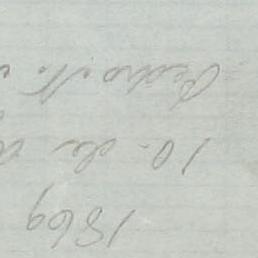 1869
10. de
Pedro N.